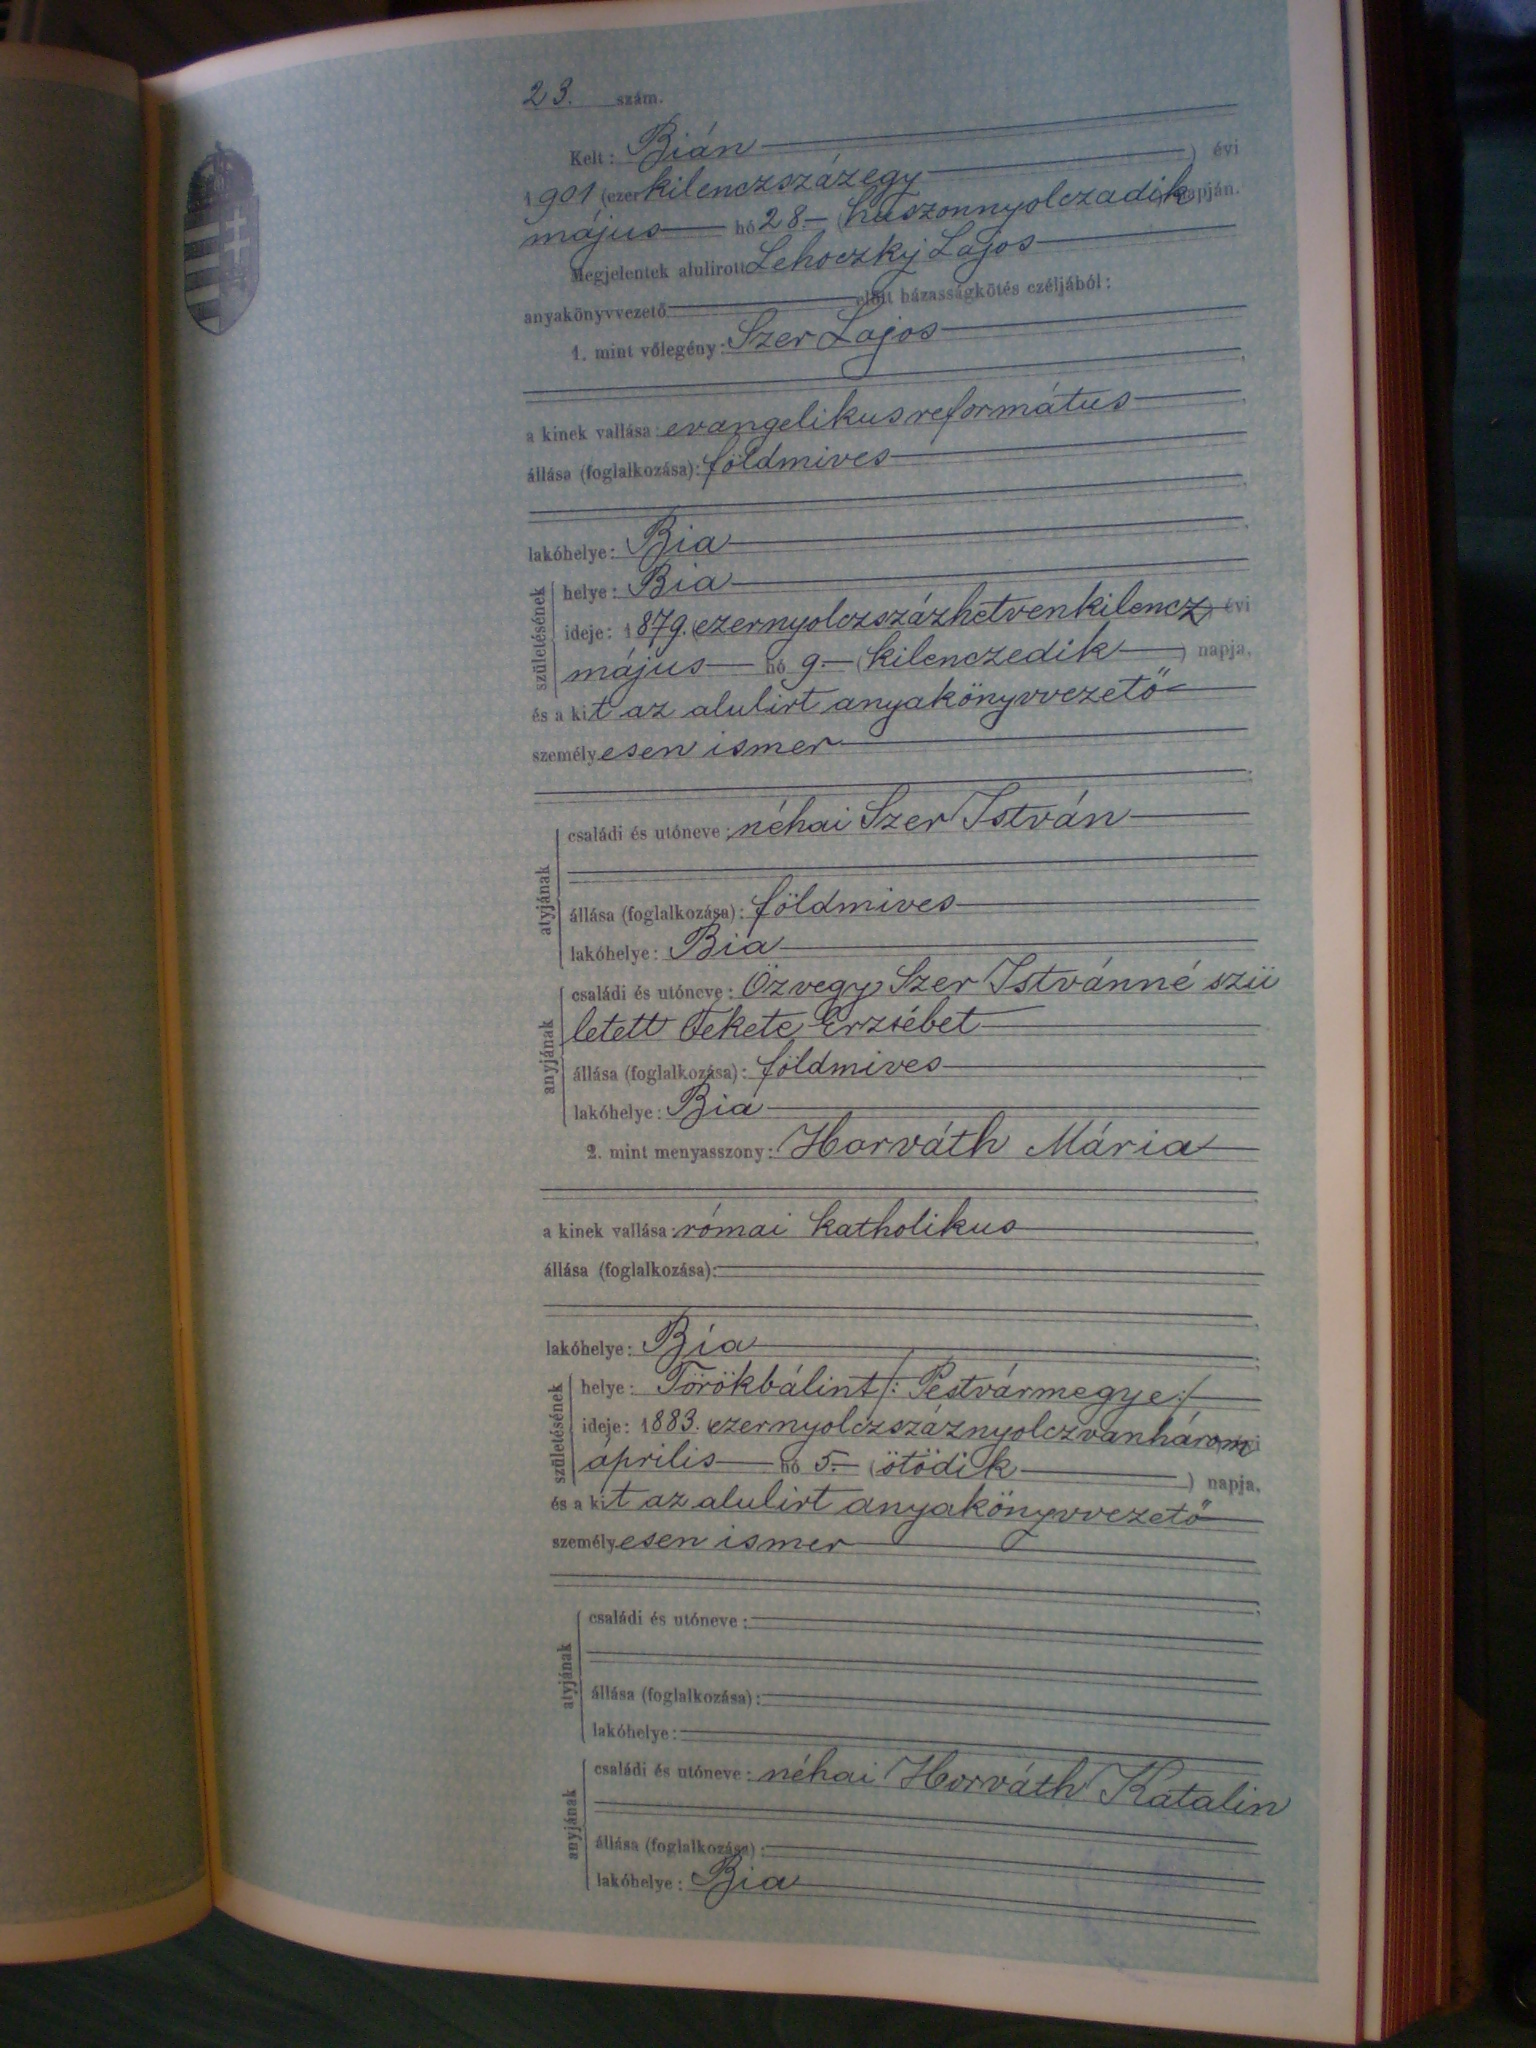 23. szám.
Kelt: Bián
1901 (ezer kilenczszázegy ) évi
május hó 28. (huszonnyolczadik) napján.
Megjelentek alulirott Lehoczky Lajos
anyakönyvvezető előtt házasságkötés czéljából:
1. mint vőlegény: Szer Lajos
a kinek vallása: evangelikus református
állása (foglalkozása): földmives
lakóhelye: Bia
születésének
helye: Bia
ideje: 1879. (ezernyolczszázhetvenkilencz) évi
május hó 9. (kilenczedik ) napja,
és a kit az alulirt anyakönyvvezető
személyesen ismer
atyjának
családi és utóneve: néhai Szer István
állása (foglalkozása): földmives
lakóhelye: Bia
anyjának
családi és utóneve: Özvegy Szer Istvánné szü
letett Fekete Erzsébet
állása (foglalkozása): földmives
lakóhelye: Bia
2. mint menyasszony: Horváth Mária
a kinek vallása: római katholikus
állása (foglalkozása):
lakóhelye: Bia
születésének
helye: Törökbálint /: Pestvármegye :/
ideje: 1883. (ezernyolczszáznyolczvanhárom) évi
április hó 5. (ötödik ) napja,
és a kit az alulirt anyakönyvvezető
személyesen ismer
atyjának
családi és utóneve:
állása (foglalkozása):
lakóhelye:
anyjának
családi és utóneve: néhai Horváth Katalin
állása (foglalkozása):
lakóhelye: Bia